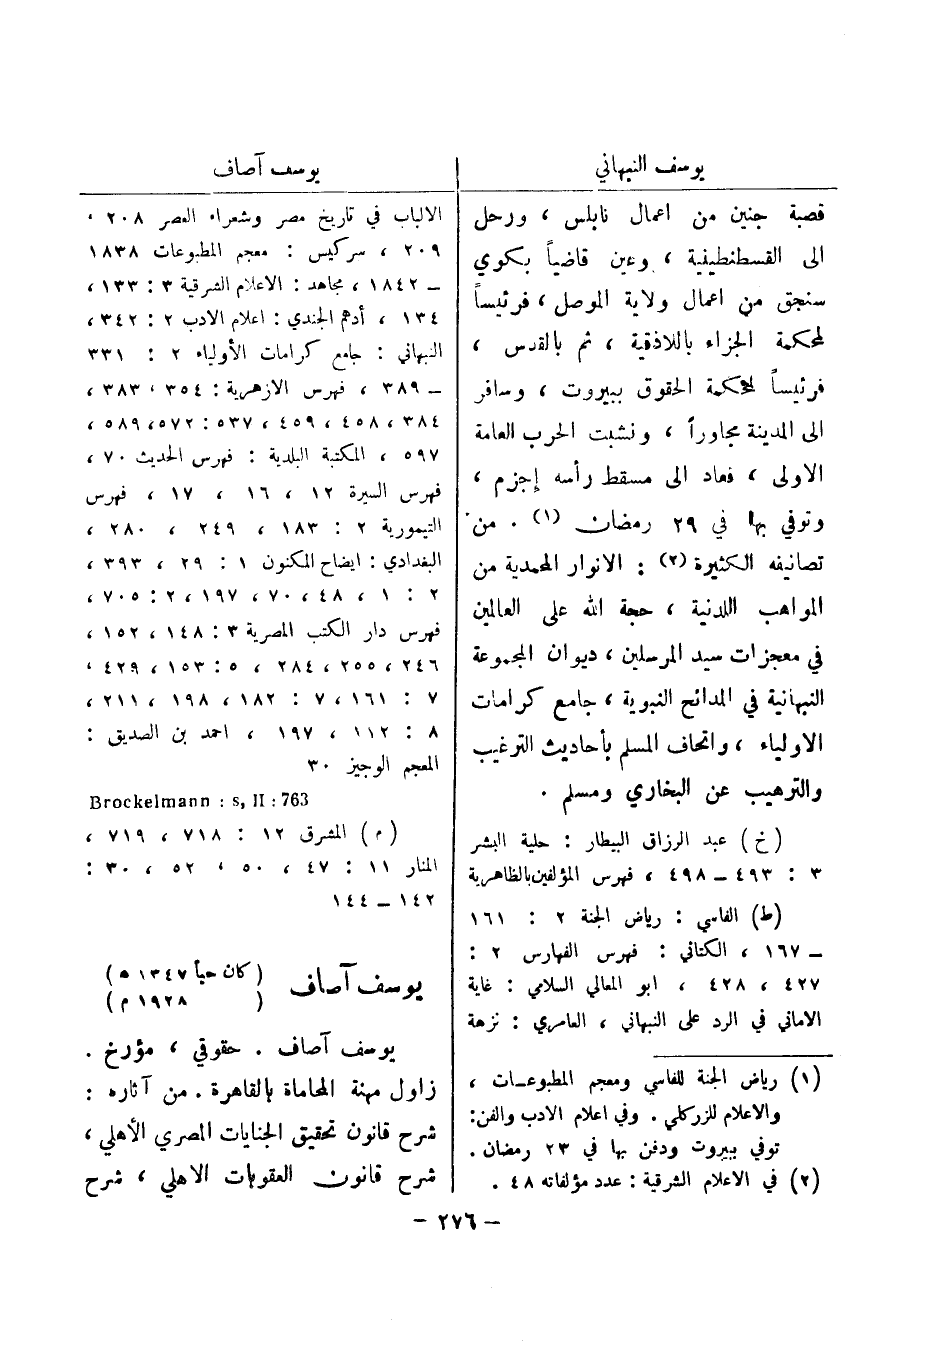 يوسف النبهاني
قصبة جنين من اعمال نابلس ، ورحل
الى القسطنطينية ، وعين قاضياً بكوي
سنجق من اعمال ولاية الموصل ، فرئيساً
لمحكمة الجزاء باللاذقية ، ثم بالقدس ،
فرئيساً لمحكمة الحقوق ببيروت ، وسافر
الى المدينة مجاوراً ، ونشبت الحرب العامة
الاولى ، فعاد الى مسقط رأسه إجزم ،
وتوفي بها في ٢٩ رمضان (١) . من
تصانيفه الكثيرة (٢) : الانوار المحمدية من
المواهب اللدنية ، حجة الله على العالمين
في معجزات سيد المرسلين ، ديوان المجموعة
النبهانية في المدائح النبوية ، جامع كرامات
الاولياء ، واتحاف المسلم بأحاديث الترغيب
والترهيب عن البخاري ومسلم .
(خ) عبد الرزاق البيطار : حلية البشر
٣ : ٤٩٣ – ٤٩٨ ، فهرس المؤلفين بالظاهرية
(ط) الفاسي : رياض الجنة ٢ : ١٦١
– ١٦٧ ، الكتاني : فهرس الفهارس ٢ :
٤٢٧ ، ٤٢٨ ، ابو المعالي السلامي : غاية
الاماني في الرد على النبهاني ، العامري : نزهة
(١) رياض الجنة للفاسي ومعجم المطبوعات ،
والاعلام للزركلي . وفي اعلام الادب والفن :
توفي ببيروت ودفن بها في ٢٣ رمضان .
(٢) في الاعلام الشرقية : عدد مؤلفاته ٤٨ .
يوسف آصاف
الالباب في تاريخ مصر وشعراء العصر ٢٠٨ ،
٢٠٩ ، سركيس : معجم المطبوعات ١٨٣٨
– ١٨٤٢ ، مجاهد : الاعلام الشرقية ٣ : ١٣٣ ،
١٣٤ ، أدهم الجندي : اعلام الادب ٢ : ٣٤٢ ،
النبهاني : جامع كرامات الأولياء ٢ : ٣٣١
– ٣٨٩ ، فهرس الازهرية : ٣٥٤ ، ٣٨٣ ،
٣٨٤ ، ٤٥٨ ، ٤٥٩ ، ٥٣٧ : ٥٧٢ ، ٥٨٩ ،
٥٩٧ ، المكتبة البلدية : فهرس الحديث ٧٠ ،
فهرس السيرة ١٢ ، ١٦ ، ١٧ ، فهرس
التيمورية ٢ : ١٨٣ ، ٢٤٩ ، ٢٨٠ ،
البغدادي : ايضاح المكنون ١ : ٢٩ ، ٣٩٣ ،
٢ : ١ ، ٤٨ ، ٧٠ ، ١٩٧ ، ٢ : ٧٠٥ ،
فهرس دار الكتب المصرية ٣ : ١٤٨ ، ١٥٢ ،
٢٤٦ ، ٢٥٥ ، ٢٨٤ ، ٥ : ١٥٣ ، ٤٢٩ ،
٧ : ١٦١ ، ٧ : ١٨٢ ، ١٩٨ ، ٢١١ ،
٨ : ١١٢ ، ١٩٧ ، احمد بن الصديق :
المعجم الوجيز ٣٠
Brockelmann : s, II : 763
(م) المشرق ١٢ : ٧١٨ ، ٧١٩ ،
المنار ١١ : ٤٧ ، ٥٠ ، ٥٢ ، ٣٠ :
١٤٢ – ١٤٤
يوسف آصاف (كان حياً ١٣٤٧ ه)
(١٩٢٨ م)
يوسف آصاف . حقوقي ، مؤرخ .
زاول مهنة المحاماة بالقاهرة . من آثاره :
شرح قانون تحقيق الجنايات المصري الأهلي ،
شرح قانون العقوبات الاهلي ، شرح
– ٢٧٦ –